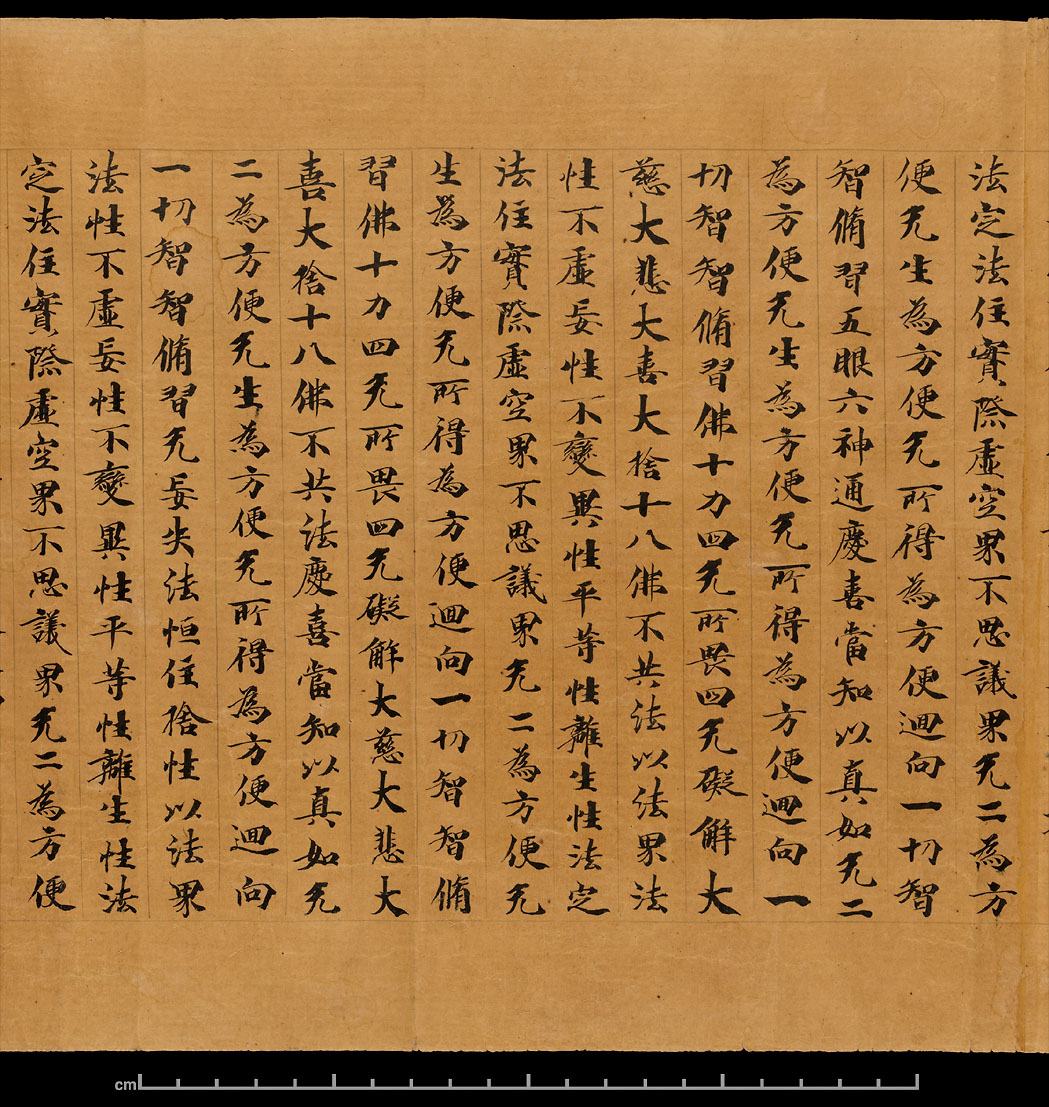 法定法住實際虛空界不思議界无二為方
便无生為方便无所得為方便迴向一切智
智脩習五眼六神通慶喜當知以真如无二
為方便无生為方便无所得為方便迴向一
切智智脩習佛十力四无所畏四无礙解大
慈大悲大喜大捨十八佛不共法以法界法
性不虛妄性不變異性平等性離生性法定
法住實際虛空界不思議界无二為方便无
生為方便无所得為方便迴向一切智智脩
習佛十力四无所畏四无礙解大慈大悲大
喜大捨十八佛不共法慶喜當知以真如无
二為方便无生為方便无所得為方便迴向
一切智智脩習无妄失法恒住捨性以法界
法性不虛妄性不變異性平等性離生性法
定法住實際虛空界不思議界无二為方便
cm